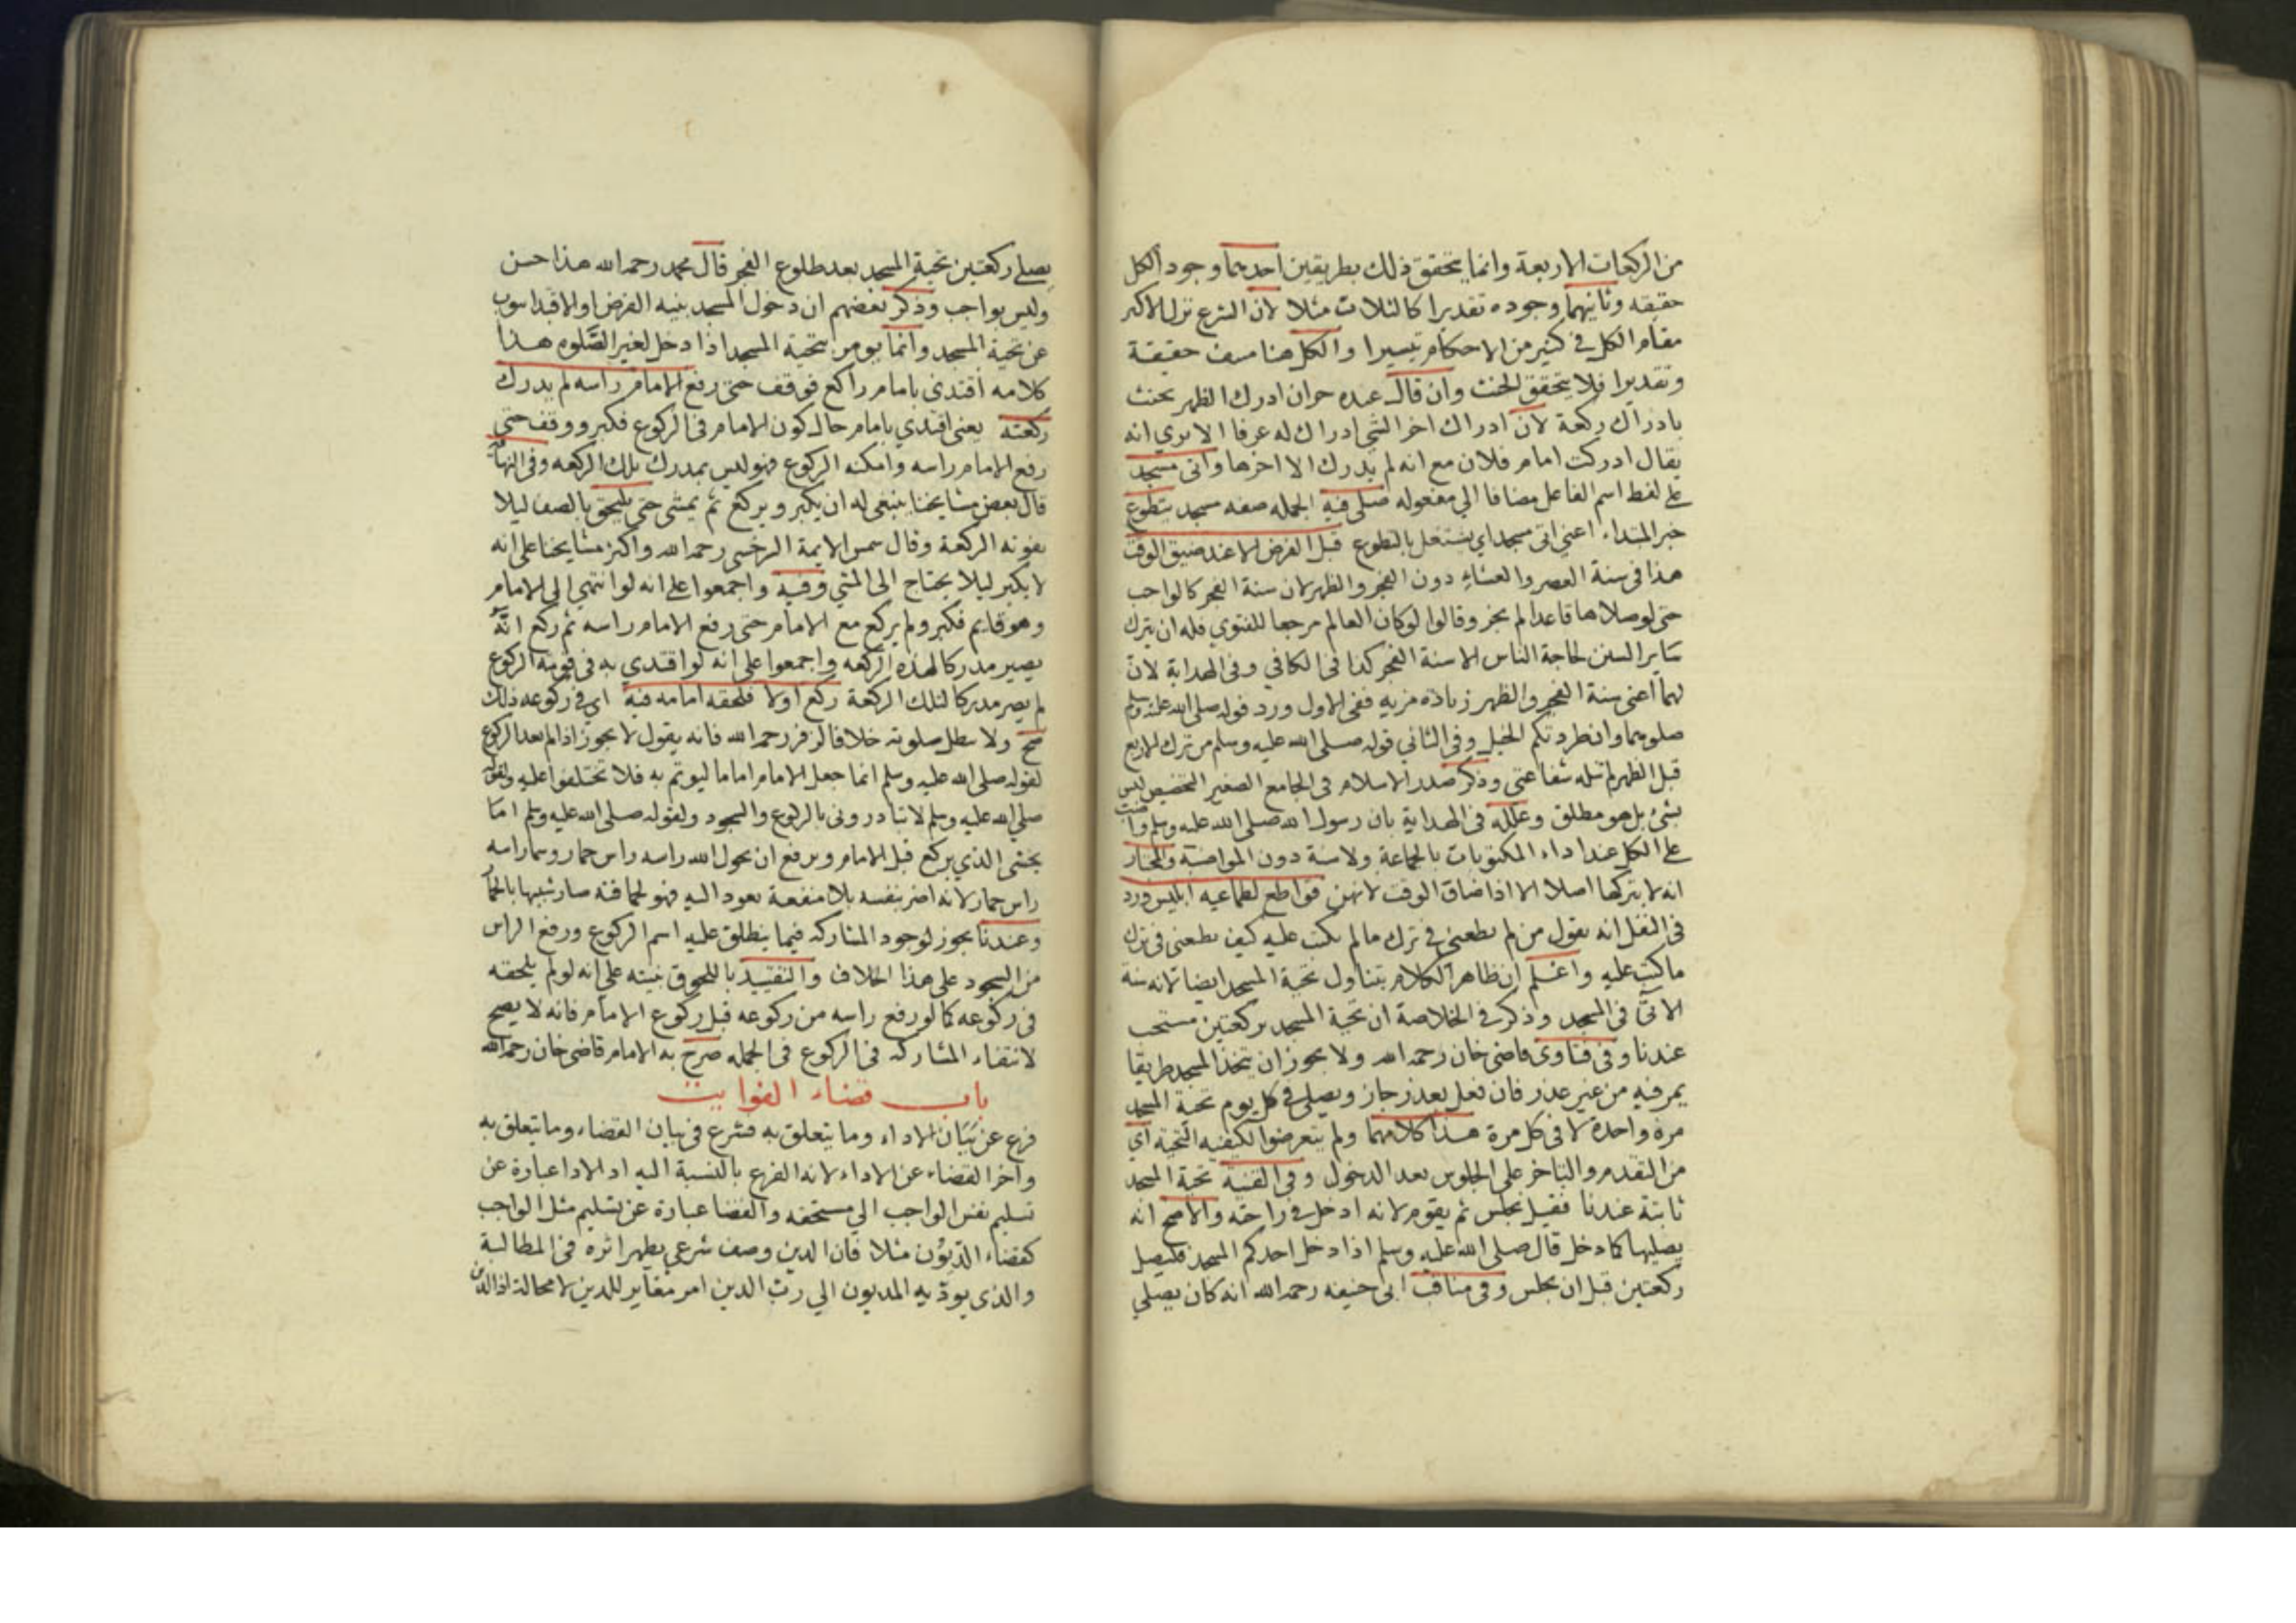 من الركعات الاربعة وانما يتحقق ذلك بطريقين احدهما وجود الكل
حقيقه وثانيهما وجوده تقديرا كالثلاث مثلا لان الشرع نزل الاكثر
مقام الكل في كثير من الاحكام تيسيرا والكل هنا منتف حقيقة
وتقديرا فلا يتحقق الحنث وان قال عبده حر ان ادرك الظهر يحنث
بادراك ركعة لان ادراك اخر الشي ادراك له عرفا الا يري انه
يقال ادركت امام فلان مع انه لم يدرك الا اخرها واتى مسجد
على لفظ اسم الفاعل مضافا الي مفعوله صلى فيه الجمله صفه مسجد يتطوع
خبر المبتداء اعني اتى مسجد اي يشتغل بالتطوع قبل الفرض الا عند ضيق الوقت
هذا في سنة العصر والعشاء دون الفجر والظهر لان سنة الفجر كالواجب
حتى لو صلاها قاعدا لم يجز وقالوا لو كان العالم مرجعا للفتوي فله ان يترك
ساير السنن لحاجة الناس الا سنة الفجر كذا في الكافي وفي الهداية لان
لهما اعني سنة الفجر والظهر زيادة مزيه ففي الاول ورد قوله صلى الله عليه وسلم
صلوهما وان طردتكم الخيل وفي الثاني قوله صلى الله عليه وسلم من ترك الاربع
قبل الظهر لم تنله شفاعتي وذكر صدر الاسلام في الجامع الصغير التخصيص ليس
بشئ بل هو مطلق وعلله في الهداية بان رسول الله صلى الله عليه وسلم واضب
على الكل عند اداء المكتوبات بالجماعة ولا سنة دون المواضبة والمختار
انه لا يتركها اصلا الا اذا ضاق الوقت لانهن قواطع لطماعيه ابليس ورد
في النفل انه يقول من لم يطعني في ترك ما لم يكتب عليه كيف يطعني في ترك
ما كتب عليه واعلم ان ظاهر الكلام يتناول تحية المسجد ايضا لانه سنة
الاتي في المسجد وذكر في الخلاصة ان تحية المسجد بركعتين مستحب
عندنا وفي فتاوى قاضي خان رحمه الله ولا يجوز ان يتخذ المسجد طريقا
يمر فيه من غير عذر فان فعل بعذر جاز ويصلي في كل يوم تحية المسجد
مرة واحدة لا في كل مرة هذا كلامهما ولم يتعرضوا لكيفيه التحية اي
من التقدم والتاخر على الجلوس بعد الدخول وفي القنية تحية المسجد
ثابتة عندنا فقيل يجلس ثم يقوم لانه ادخل في راحته والاصح انه
يصليها كما دخل قال صلى الله عليه وسلم اذا دخل احدكم المسجد فليصل
ركعتين قبل ان يجلس وفي مناقب ابي حنيفه رحمه الله انه كان يصلي
يصلي ركعتين تحية المسجد بعد طلوع الفجر قال محمد رحمه الله هذا حسن
وليس بواجب وذكر بعضهم ان دخول المسجد بنيه الفرض او الاقتدا ينوب
عن تحية المسجد وانما يومر بتحية المسجد اذا دخل لغير الصلوه هذا
كلامه اقتدى بامام راكع فوقف حتى رفع الامام راسه لم يدرك
ركعته يعني اقتدي بامام حال كون الامام في الركوع فكبر ووقف حتى
رفع الامام راسه وامكنه الركوع فهو ليس بمدرك تلك الركعه وفي النهايه
قال بعض مشايخنا ينبغي له ان يكبر ويركع ثم يمشي حتى يلتحق بالصف ليلا
يفوته الركعة وقال شمس الايمة السرخسي رحمه الله واكثر مشايخنا على انه
لا يكبر ليلا يحتاج الى المشي وفيه واجمعوا على انه لو انتهي الى الامام
وهو قايم فكبر ولم يركع مع الامام حتى رفع الامام راسه ثم ركع انه
يصير مدركا لهذه الركعه واجمعوا على انه لو اقتدي به في قومة الركوع
لم يصر مدركا لتلك الركعة ركع اولا فلحقه امامه فيه اي في ركوعه ذلك
صح ولا تبطل صلوته خلافا لزفر رحمه الله فانه يقول لا يجوز اذا لم يعد الركوع
لقوله صلى الله عليه وسلم انما جعل الامام اماما ليوتم به فلا تختلفوا عليه ولقوله
صلى الله عليه وسلم لا تبادروني بالركوع والسجود ولقوله صلى الله عليه وسلم اما
يخشى الذي يركع قبل الامام ويرفع ان يحول الله راسه راس حمار وسما راسه
راس حمار لانه اضر بنفسه بلا منفعة تعود اليه فهو لحماقته صار شبيها بالحمار
وعندنا يجوز لوجود المشاركه فيما ينطلق عليه اسم الركوع ورفع الراس
من السجود على هذا الخلاف والتقييد باللحوق نبيته على انه لو لم يلحقه
في ركوعه كما لو رفع راسه من ركوعه قبل ركوع الامام فانه لا يصح
لانتفاء المشاركه في الركوع في الجمله صرح به الامام قاضي خان رحمه الله
باب قضاء الفوايت
فرغ عن بيان الاداء وما يتعلق به فشرع في بيان القضاء وما يتعلق به
واخر القضاء عن الاداء لانه الفرع بالنسبة اليه اذ الادا عبارة عن
تسليم نفس الواجب الي مستحقه والقضا عبارة عن تسليم مثل الواجب
كقضاء الديون مثلا فان الدين وصف شرعي يظهر اثره في المطالبة
والذي يوديه المديون الي رب الدين امر مغاير للدين لا محالة اذ الدين